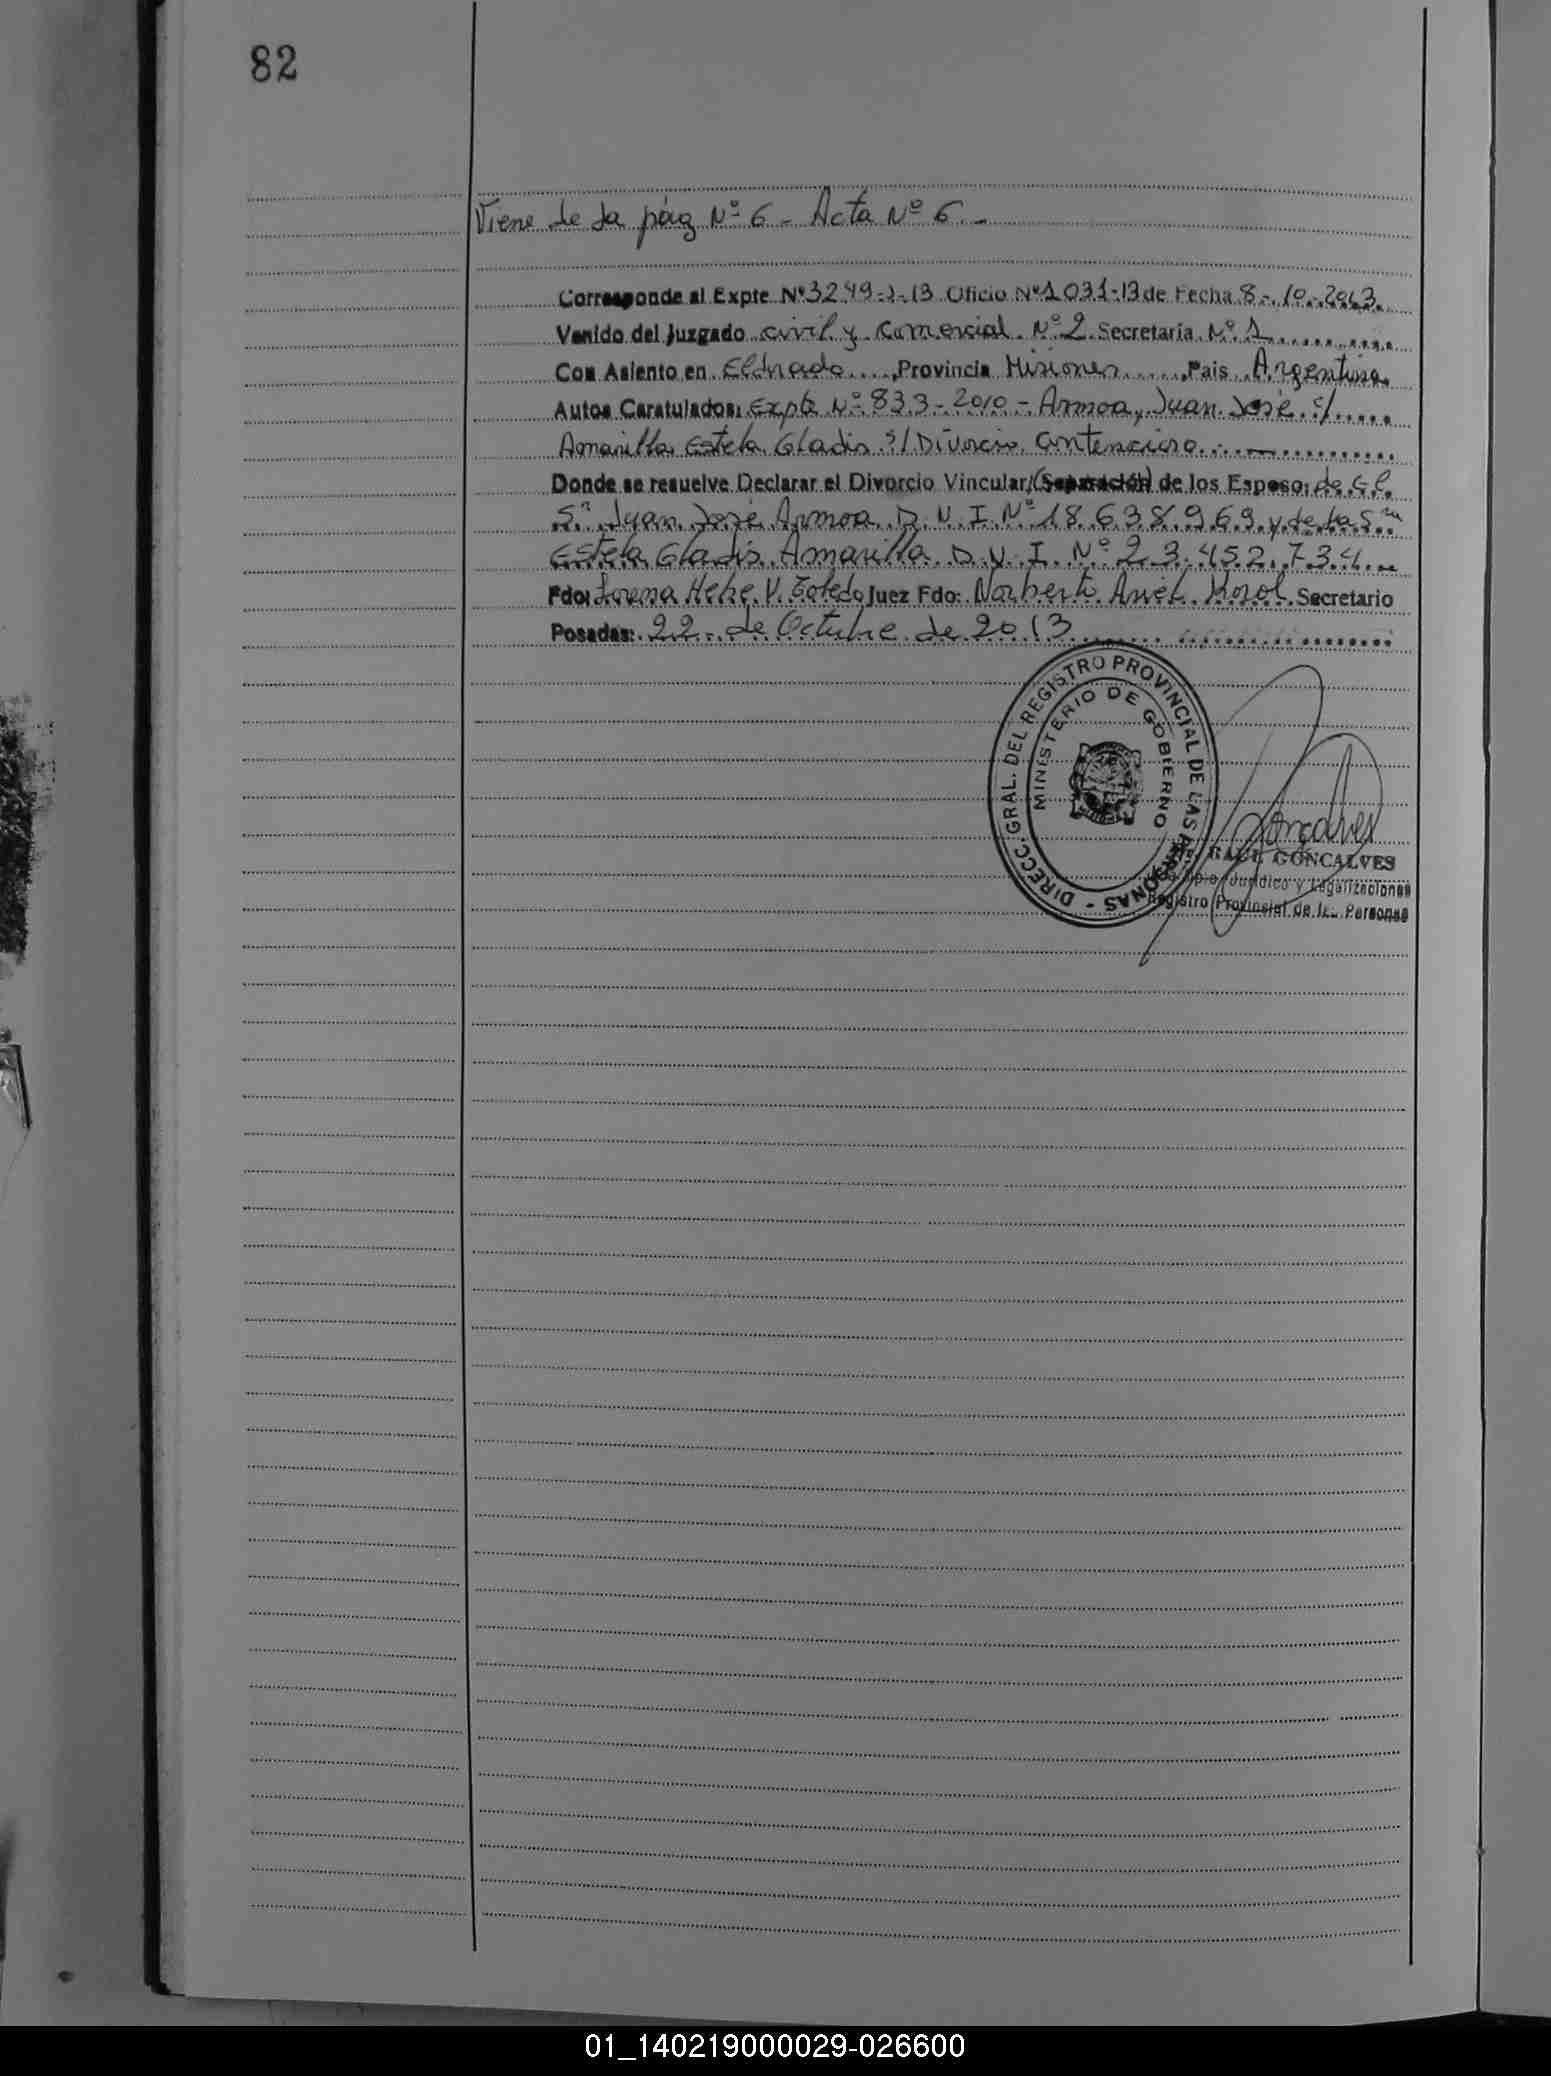 82
Viene de la pág Nº 6 - Acta Nº 6.-
Corresponde al Expte Nº 3249-J-13 Oficio Nº 1031-13 de Fecha 8-10-2013.
Venido del Juzgado civil y Comercial Nº 2 Secretaría Nº 1
Con Asiento en Eldorado, Provincia Misiones, Pais Argentina
Autos Caratulados: Expte Nº 833-2010 - Armoa, Juan José c/
Amarilla Estela Gladis s/ Divorcio Contencioso
Donde se resuelve Declarar el Divorcio Vincular/(Separación) de los Esposo: de el
Sr Juan José Armoa D.N.I. Nº 18.638.969 y de la Sra
Estela Gladis Amarilla D.N.I. Nº 23.452.734
Fdo: V. Toledo Juez Fdo: Norberto Ariel Korol Secretario
Posadas: 22 de Octubre de 2013
DIRECC. GRAL. DEL REGISTRO PROVINCIAL DE LAS PERSONAS -
MINISTERIO DE GOBIERNO
Goncalves
RAUL GONCALVES
Jurídico y Legalizaciones
Registro Provincial de las Personas
01_140219000029-026600